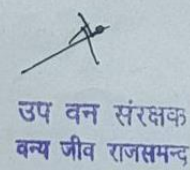 उप वन संरक्षक
वन्य जीव राजसमन्द